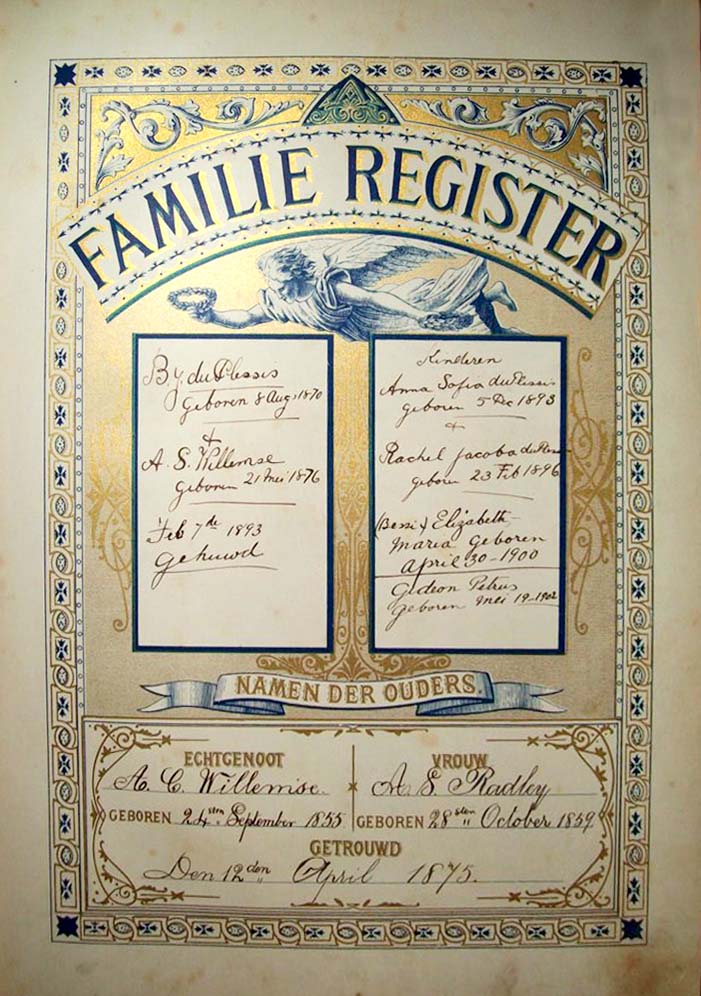 FAMILIE REGISTER
B. J. du Plessis
geboren 8 Aug 1870
&
A. S. Willemse
geboren 21 Mei 1876
Feb 7de 1893
gehuwd
Kinderen
Anna Sofia du Plessis
geboren 5 Dec 1893
&
Rachel Jacoba du
geboren 23 Feb 1896
(Bessi) Elizabeth
Maria Geboren
April 30 - 1900
Gideon Petrus
geboren Mei 19-1902
NAMEN DER OUDERS
ECHTGENOOT
A. C. Willemse.
GEBOREN 24sten September 1855
VROUW
A. S. Radley
GEBOREN 28sten October 1859
GETROUWD
Den 12den April 1875.